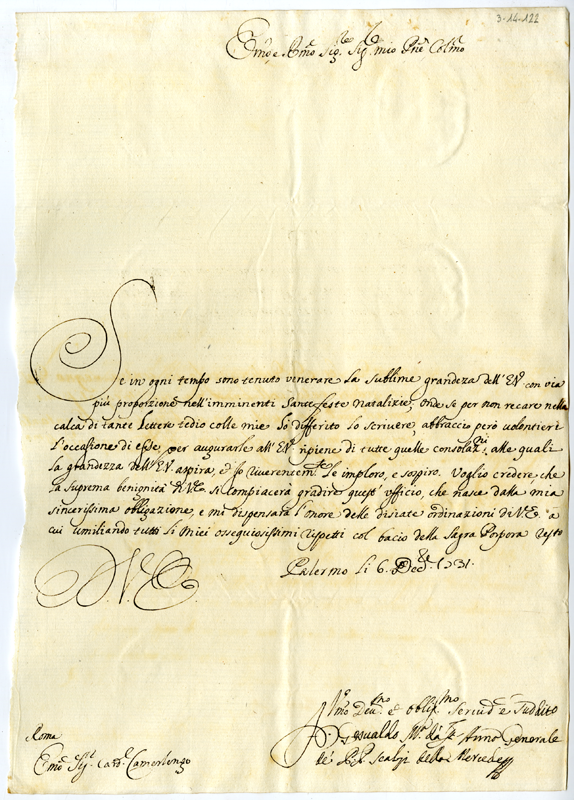 3-14-122
Em̃o, e Rm̃o Sig.re Sig.r mio Prñe Colm̃o
Se in ogni tempo sono tenuto venerare la sublime grandeza dell'E.V. con via
più proporzione nell'imminenti Sante feste natalizie, onde se per non recare nella
calca di tante lettere tedio colle mie hò differito lo scrivere, abbraccio però volontieri
l'occasione di esse, per augurarle all'E.V. ripiene di tutte quelle consolaz.ni, alle quali
la grandezza dell'E.V. aspira, et io riverentem.te le imploro, e sospiro. Voglio credere che
la suprema benignità di V.E. si compiacerà gradire quest'ufficio, che nasce dalla mia
sincerissima obligazione, e mi dispensarà l'onore delle disiate ordinazioni di V.E. a
cui umiliando tutti li miei ossequiosissimi rispetti col bacio della Sagra Porpora resto
D.V.E.
Palermo li 6. Dec.bre 1731.
Vm̃o Dev.mo et oblig.mo Servid.e e Suddito
F. Osvaldo M.a da Anno Generale
de' PP. Scalzi della Mercede
Roma
Em̃o Sig.r Card. Camerlengo